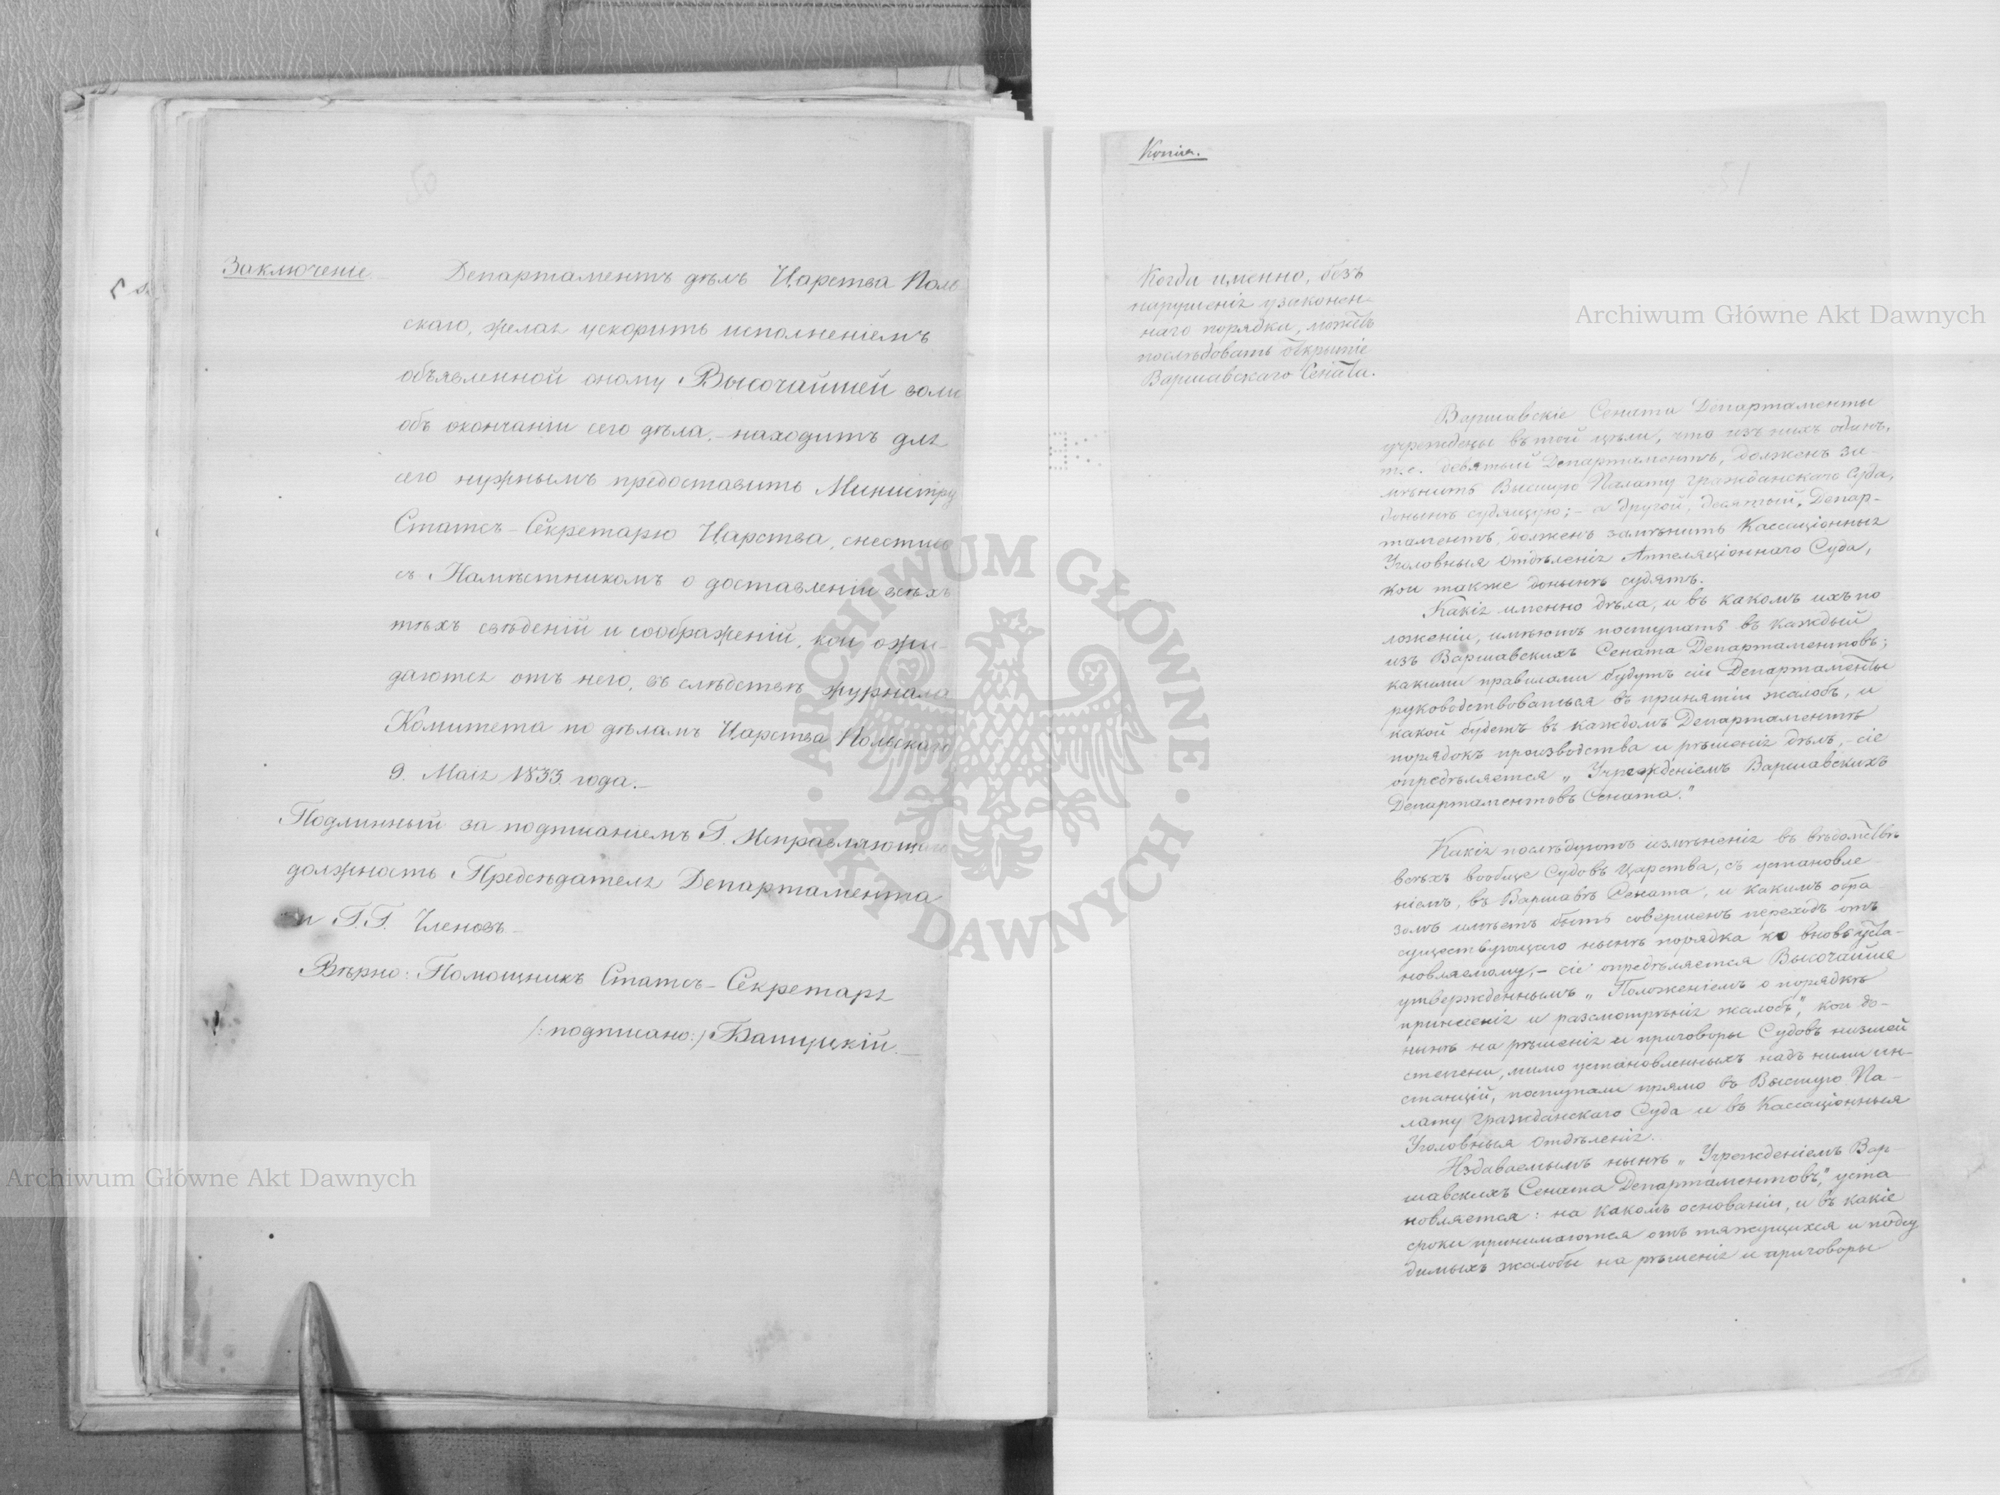 Заключеніе
Департаментъ дѣлъ Царства Поль
скаго, желая ускорить исполненіемъ
объявленной оному Высочайшей воли
объ окончаніи сего дѣла, - находитъ для
сего нужнымъ предоставить Министру
Статсъ-Секретарю Царства, снестись
съ Намѣстникомъ о доставленіи всѣхъ
тѣхъ свѣденій и соображеній, кои ожи-
даются отъ него, въ слѣдствіе журнала
Комитета по дѣламъ Царства Польскаго
9. Маія 1833 года.-
Подлинный за подписаніемъ Г. Исправляющаго
должность Предсѣдателя Департамента
и Г.Г. Членовъ
Вѣрно: Помощникъ Статсъ-Секретаря
/:подписано:/
Копія.
51
Когда именно, безъ
нарушенія узаконен-
наго порядка, можетъ
послѣдовать открытіе
Варшавскаго Сената.
Варшавскіе Сената Департаменты
учреждены въ той цѣли, что изъ нихъ одинъ,
т.е. девятый Департаментъ, долженъ за-
мѣнить Высшую Палату гражданскаго Суда,
донынѣ судящую; - а другой, десятый, Депар-
таментъ, долженъ замѣнить Кассаціонныя
Уголовныя Отдѣленія Аппеляціоннаго Суда,
кои также донынѣ судятъ.
Какія именно дѣла, и въ какомъ ихъ по
ложеніи, имѣютъ поступать въ каждый
изъ Варшавскихъ Сената Департаментовъ;
какими правилами будутъ сіи Департаменты
руководствоваться въ принятіи жалобъ, и
какой будетъ въ каждомъ Департаментѣ
порядокъ производства и рѣшенія дѣлъ, - сіе
опредѣляется „Учрежденіемъ Варшавскихъ
Департаментовъ Сената."
Какія послѣдуютъ измѣненія въ вѣдомствѣ
всѣхъ вообще Судовъ Царства, съ установле-
ніемъ, въ Варшавѣ Сената, и какимъ обра-
зомъ имѣетъ быть совершенъ переходъ отъ
существующаго нынѣ порядка ко вновь уста-
новляемому, - сіе опредѣляется Высочайше
утвержденнымъ „Положеніемъ о порядкѣ
принесенія и разсмотрѣнія жалобъ", кои до-
нынѣ на рѣшенія и приговоры Судовъ низшей
степени, мимо установленныхъ надъ ними ин-
станцій, поступали прямо въ Высшую Па-
лату гражданскаго Суда и въ Кассаціонныя
Уголовныя Отдѣленія.
Издаваемымъ нынѣ „Учрежденіемъ Вар-
шавскихъ Сената Департаментовъ", уста
новляется: на какомъ основаніи, и въ какіе
сроки принимаются отъ тяжущихся и подсу
димыхъ жалобы на рѣшенія и приговоры
Archiwum Główne Akt Dawnych
Archiwum Główne Akt Dawnych
ARCHIWUM GŁÓWNE · AKT DAWNYCH ·